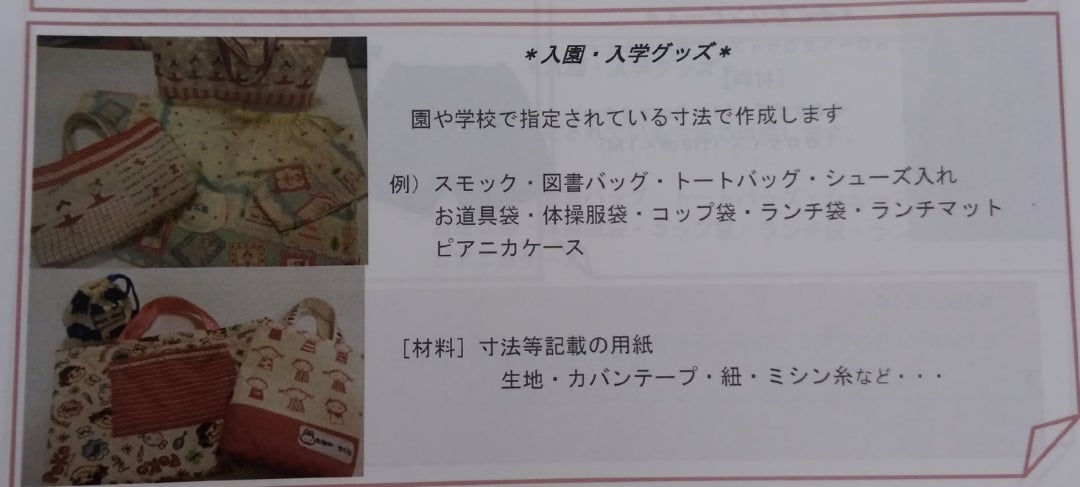 *入園・入学グッズ*
園や学校で指定されている寸法で作成します
例）スモック・図書バッグ・トートバッグ・シューズ入れ
お道具袋・体操服袋・コップ袋・ランチ袋・ランチマット
ピアニカケース
［材料］寸法等記載の用紙
生地・カバンテープ・紐・ミシン糸など・・・